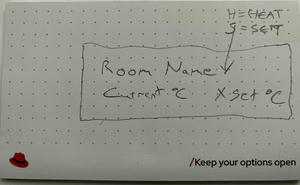 H=HEAT
S=SETT
Room Name
Current °C X-Set °C
/Keep your options open